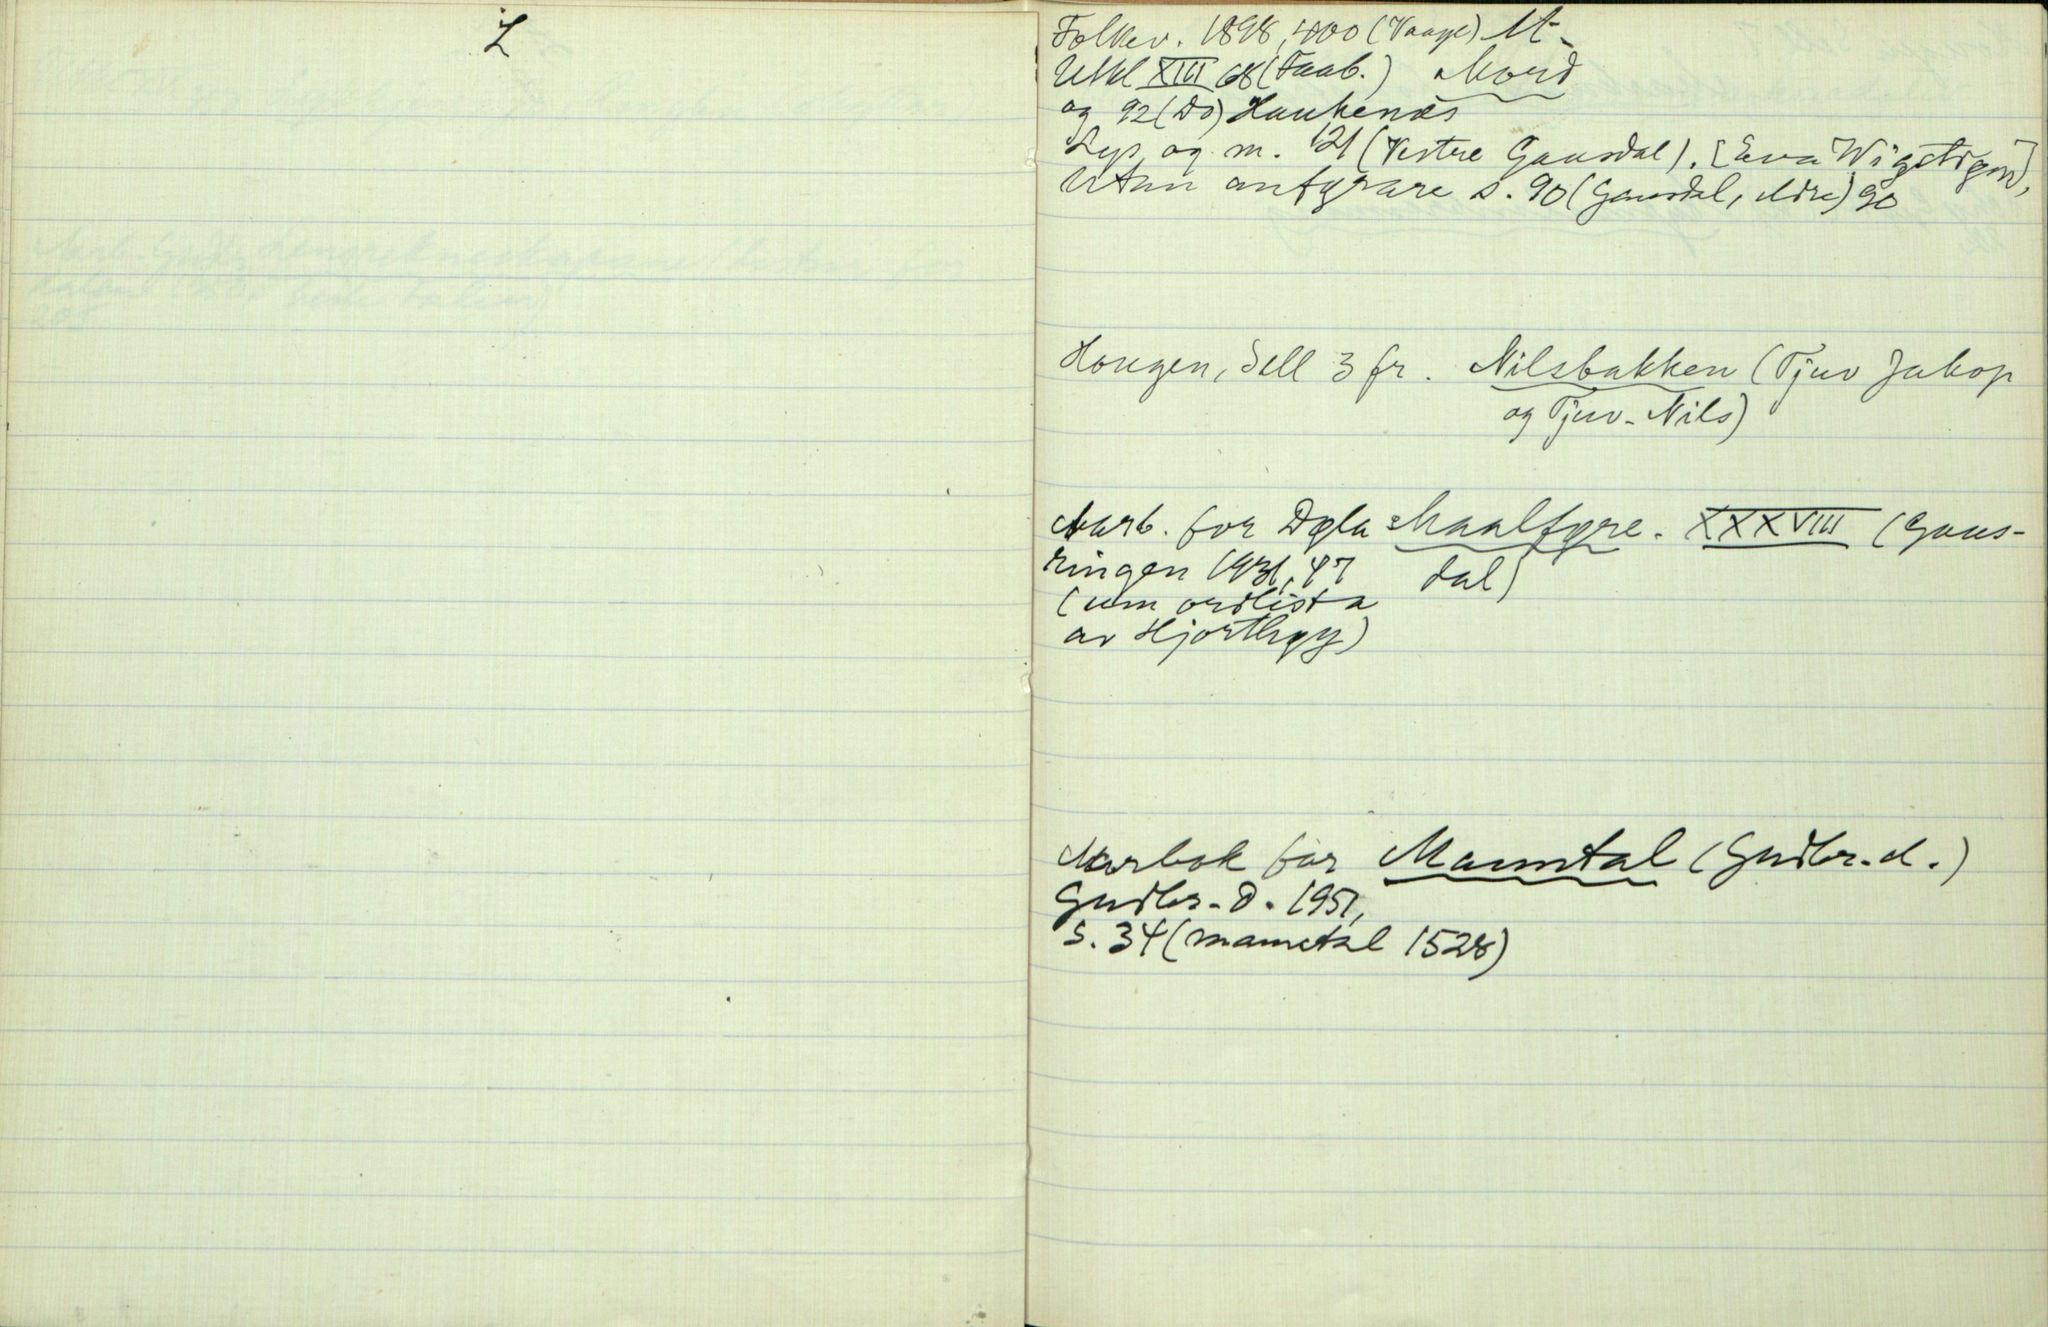 L
Folkev. 1898, 400 (Vaage) M-
Utkl XIII 68 (Faab.) Mord
og 92 (Do) Haukenæs
og m. 121 (Vestre Gausdal). [Eva Wigström],
Utan anfyrare s. 90 (Gausdal, ) 90
Hougen, Sell 3 fr. Nilsbakken (Tjuv Jakop
og Tjuv-Nils)
Aarb. for Døla Maalføre. XXXVIII (Gaus-
ringen 1931, 47 dal)
(um ordlista
av Hjorthøy)
Aarbok for Manntal (Gudbr. d.)
Gudbr. D. 1951,
s. 34 (manetal 1528)